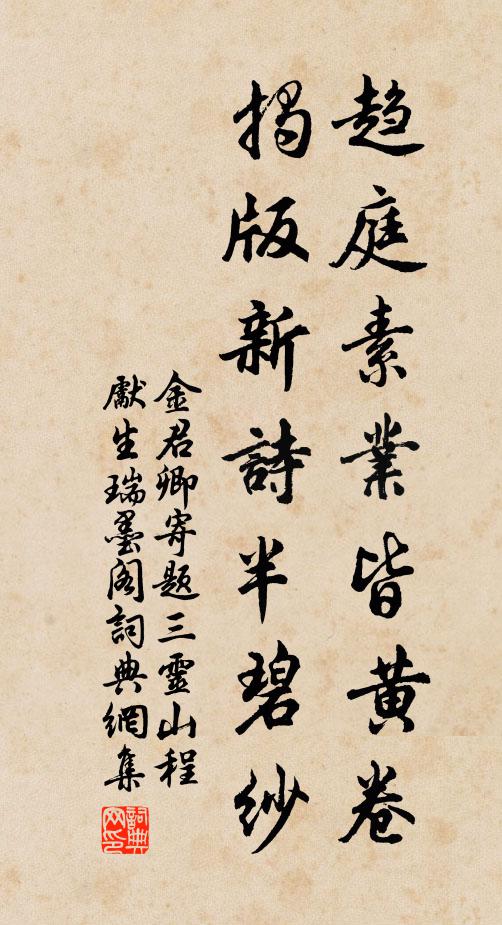 趨庭素業皆黃卷
揭版新詩半碧紗
金君卿寄题三靈山程
獻生瑞墨阁詞典網集
詞典网印